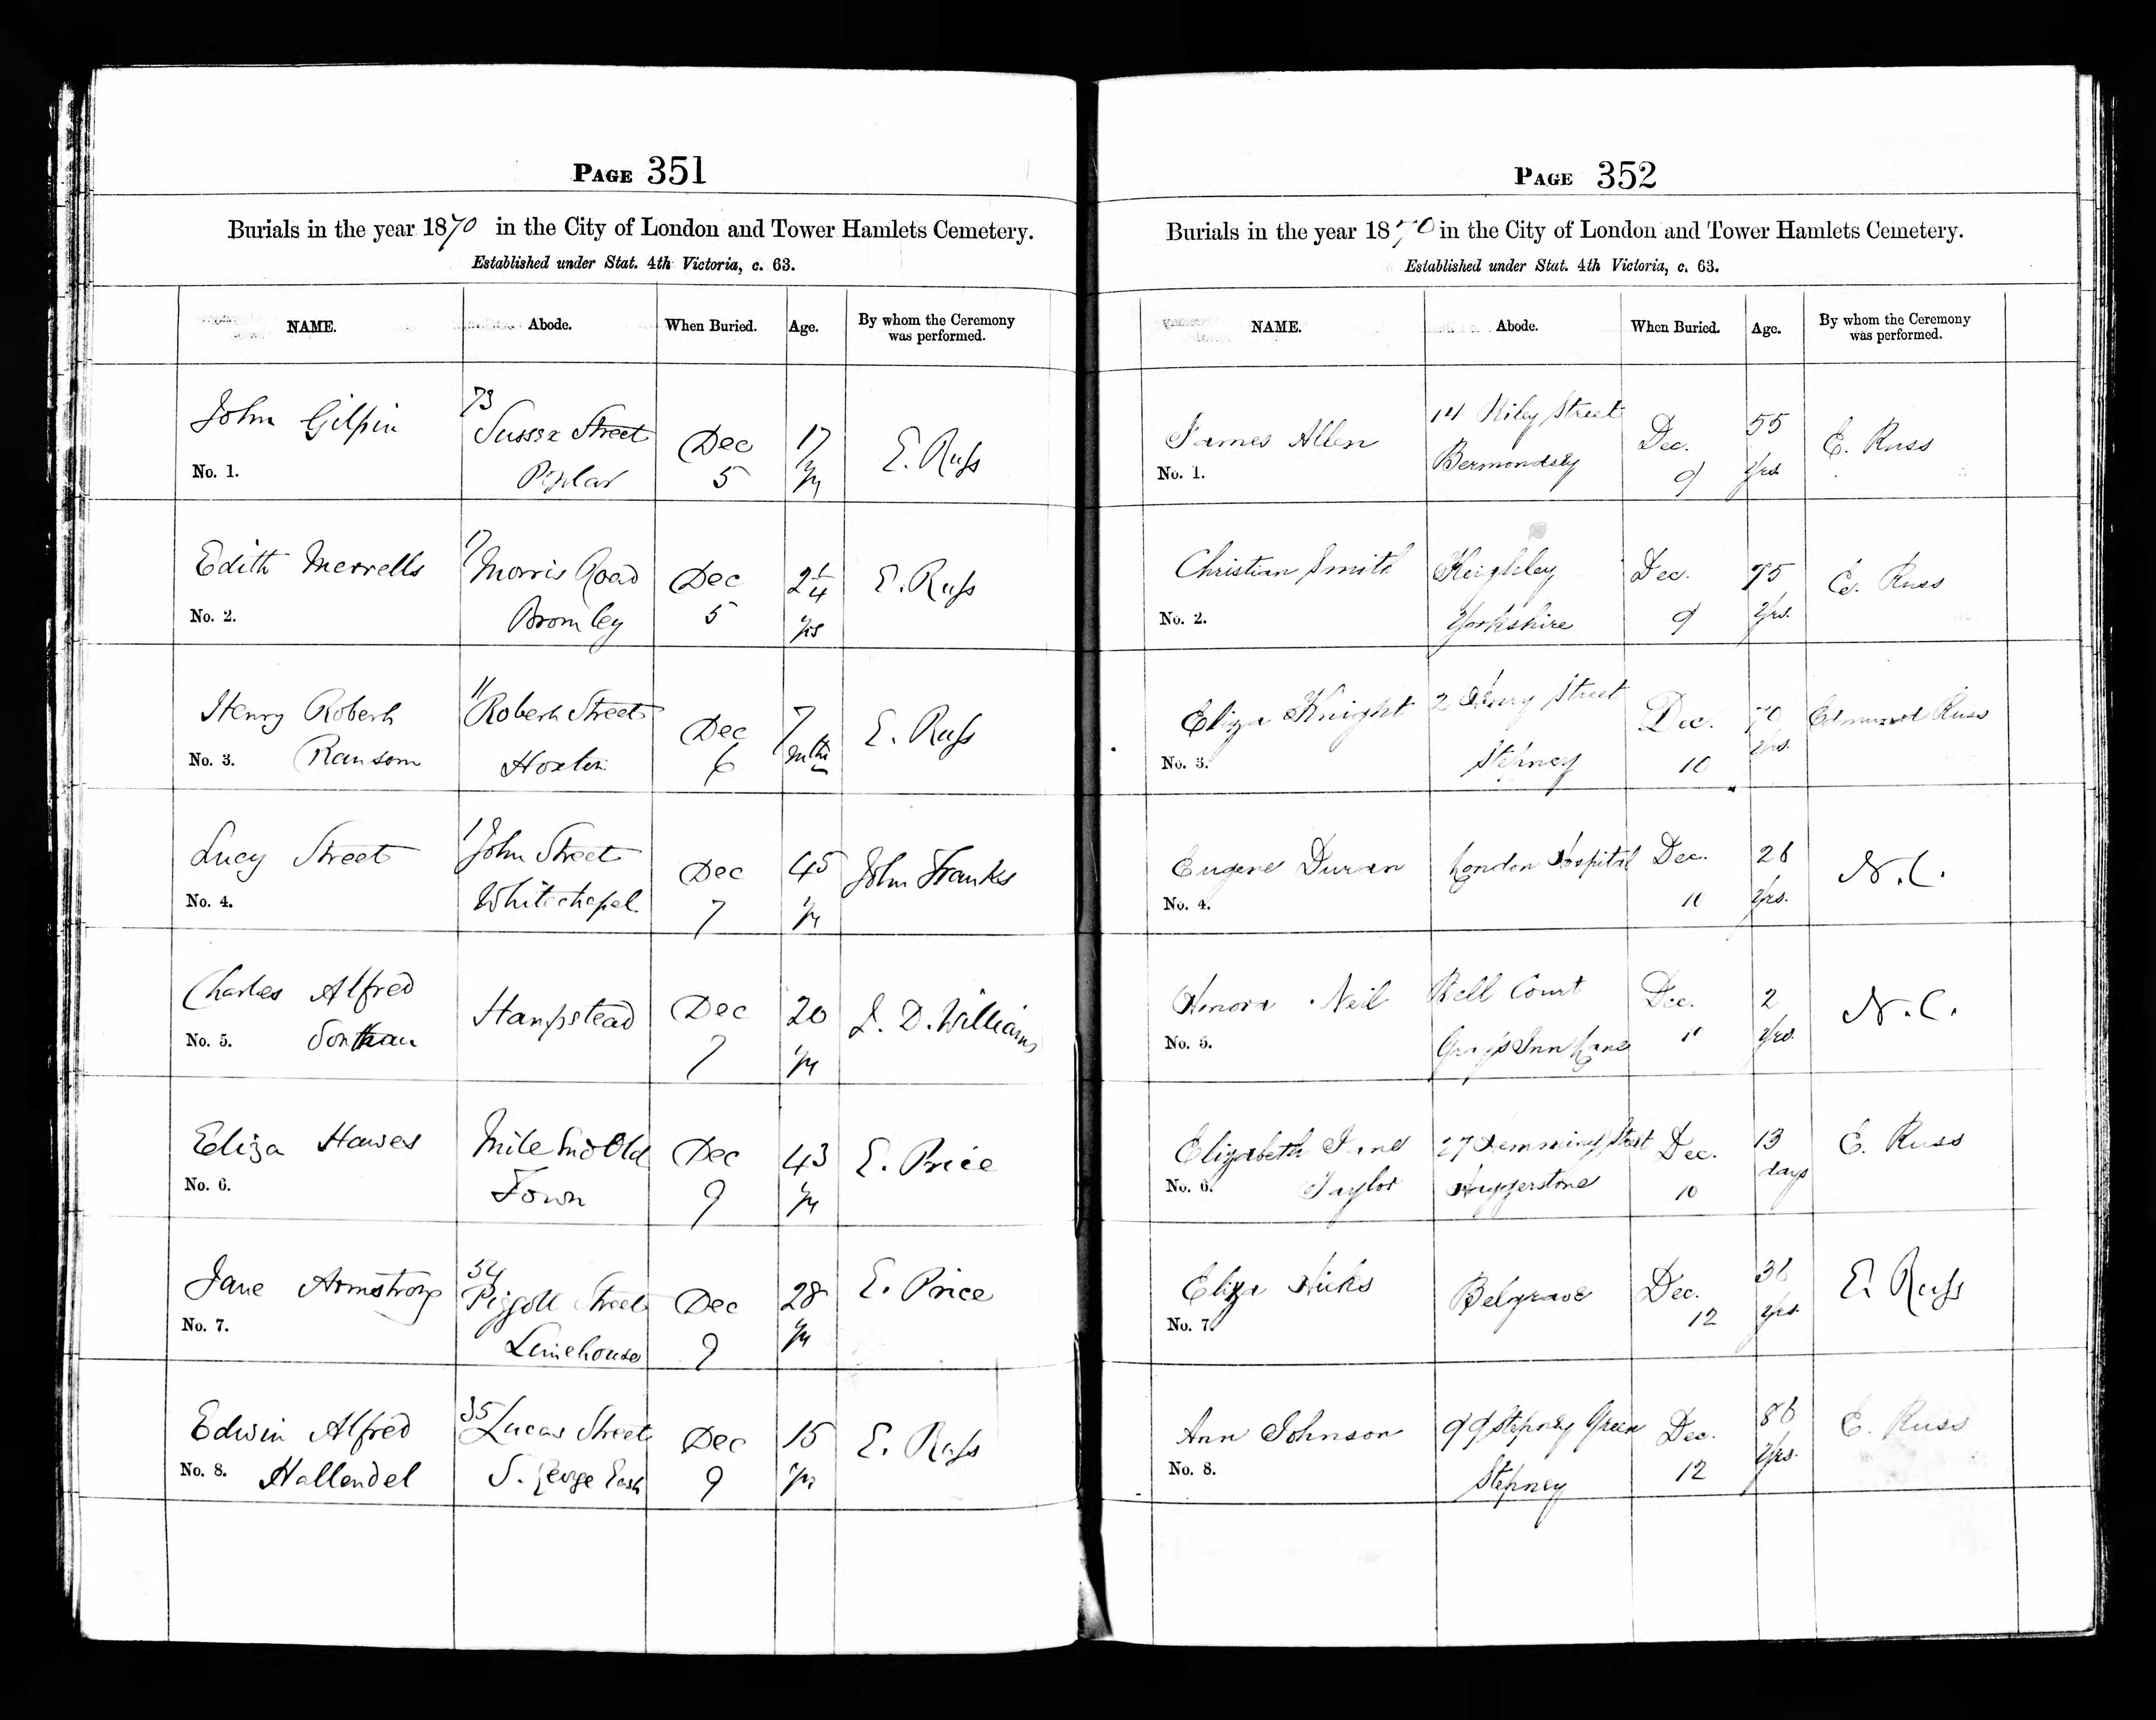 PAGE 351
Burials in the year 1870 in the City of London and Tower Hamlets Cemetery.
Established under Stat. 4th Victoria, c. 63.
NAME. Abode. When Buried. Age. By whom the Ceremony was performed.
John Gilpin
No. 1.
73
Sussex Street
Poplar
Dec
5
17
yrs
E. Russ
Edith Merrells
No. 2.
17
Morris Road
Bromley
Dec
5
2 1/4
yrs
E. Russ
Henry Robert
No. 3. Ransom
11
Robert Street
Hoxton
Dec
6
7
mths
E. Russ
Lucy Street
No. 4.
1
John Street
Whitechapel
Dec
7
45
yrs
John Franks
Charles Alfred
No. 5.
Hampstead
Dec
7
20
yrs
J. D. Williams
Eliza Hawes
No. 6.
Mile End Old
Town
Dec
9
43
yrs
E. Price
Jane Armstrong
No. 7.
34
Piggott Street
Limehouse
Dec
9
28
yrs
E. Price
Edwin Alfred
No. 8. Hallendel
35
Lucas Street
S. George East
Dec
9
15
yrs
E. Russ
PAGE 352
Burials in the year 1870 in the City of London and Tower Hamlets Cemetery.
Established under Stat. 4th Victoria, c. 63.
NAME. Abode. When Buried. Age. By whom the Ceremony was performed.
James Allen
No. 1.
14 Riley Street
Bermondsey
Dec.
9
55
yrs
E. Russ
Christian Smith
No. 2.
Keighley
Yorkshire
Dec.
9
75
yrs.
E. Russ
Eliza Knight
No. 3.
2 Henry Street
Stepney
Dec.
10
70
yrs.
Edmund Russ
Eugene Duran
No. 4.
London Hospital
Dec.
10
26
yrs.
N. C.
Honora Neil
No. 5.
Bell Court
Grays Inn Lane
Dec.
10
2
yrs.
N. C.
Elizabeth Jane
No. 6. Taylor
27 Hemming Street
Haggerstone
Dec.
10
13
days
E. Russ
Eliza Hicks
No. 7.
Belgrave
Dec.
12
36
yrs
E. Russ
Ann Johnson
No. 8.
99 Stepney Green
Stepney
Dec.
12
86
yrs.
E. Russ